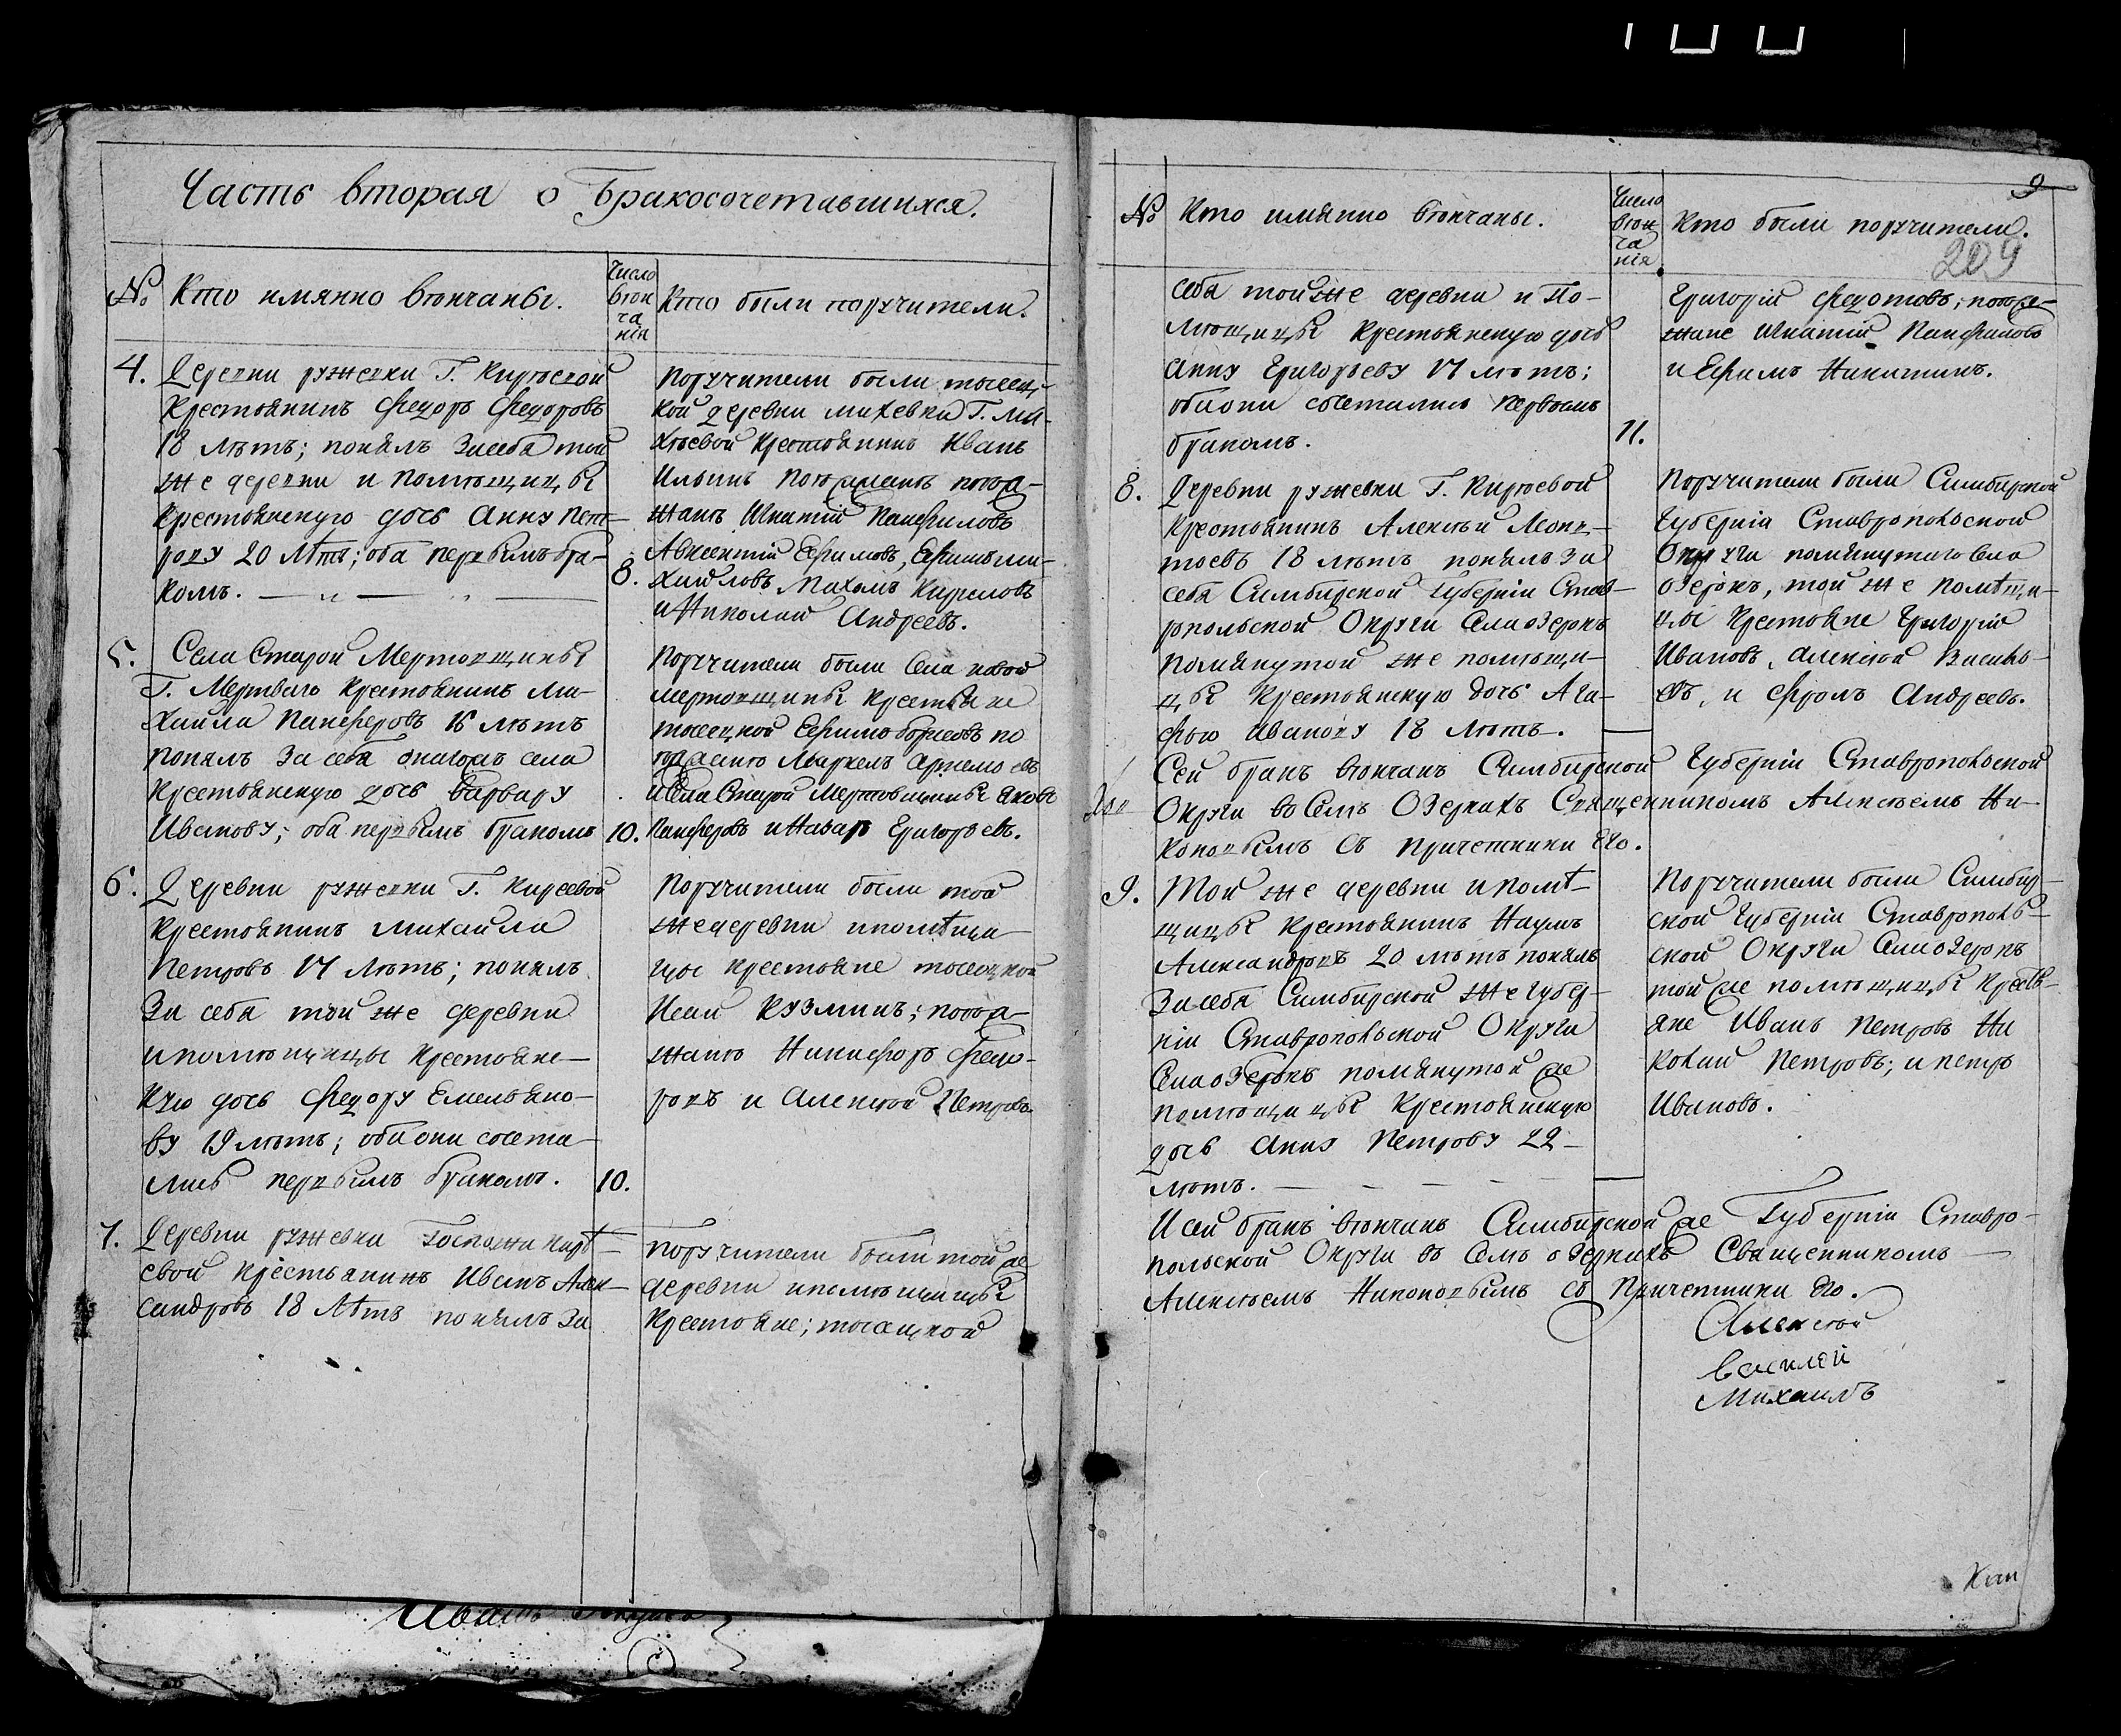 Часть вторая о Бракосочетавшихся.
№ Кто имянно вѣнчаны.
Число вѣн ча нія
Кто были поручители.
4. Деревни ружевки Г. Кирѣевой
крестьянинъ Федоръ Федоровъ
18 лѣтъ; понялъ засебя той
же деревни и помѣщицы
крестьянскую дочь Анну пет-
рову 20 лѣтъ; оба первымъ бра-
комъ.
8.
поручители были тысец-
кой деревни михевки Г. Ми-
хѣевой крестьянинъ Иванъ
Ильинъ
жанѣ Игнатій Панфиловъ
Авксентій Ефимовъ, Ефимъ ми-
хайловъ, Пахомъ Кириловъ
и Николай Андреевъ.
5. Села Старой Мертовщины
Г. Мертваго крестьянинъ Ми-
хайла Панферовъ 16 лѣтъ
понялъ за себя онагожъ села
крестьянскую дочь варвару
Иванову; оба первымъ бракомъ
10.
поручители были села новой
мертовщины крестьяне
тысецкой Ефимъ борисовъ по
Маркелъ Артемьевъ
и села Старой Мертовщины яковъ
Панферовъ и Назаръ Григорьевъ.
6. Деревни ружевки Г. Кирѣевой
крестьянинъ михайла
петровъ 17 лѣтъ; понялъ
за себя той же деревни
и помѣщицы крестьянс-
кую дочь Федору Емельяно-
ву 19 лѣтъ; оба они сочета-
лись первымъ бракомъ.
10.
поручители были той
же деревни и помѣщи-
цы крестьяне тысецкой
Исай Кузминъ; поѣза-
жанѣ Никифоръ Федо-
ровъ и Алексѣй Петровъ.
7. Деревни ружевки Госпожи кирѣ-
евой крестьянинъ Иванъ Алек-
сандровъ 18 лѣтъ понялъ за
поручители были той же
деревни и помѣщицы
крестьяне; тысецкой
9
209
№ Кто имянно вѣнчаны.
Число вѣн ча нія
Кто были поручители.
себя тойже деревни и по-
мѣщицы крестьянскую дочь
анну Григорьеву 17 лѣтъ;
оба они сочетались первымъ
бракомъ.
11.
Григорій Федотовъ; поѣзе-
жане Игнатій Панфиловъ
и Ефимъ Никитинъ.
8. Деревни ружевки Г. Кирѣевой
крестьянинъ Алексѣй Леон-
тьевъ 18 лѣтъ понялъ за
себя Симбирской губерніи Став-
ропольской Округи села озерокъ
помянутой же помѣщи-
цы крестьянскую дочь Ага-
фью иванову 18 лѣтъ.
поручители были Симбирской
Губерніи Ставропольской
Округи помянутаго села
озерокъ, той же помѣщи-
цы крестьяне Григорій
Ивановъ, алексѣй Василь-
евъ, и Фролъ Андреевъ.
Сей бракъ вѣнчанъ Симбирской Губерніи Ставропольской
Округи во селѣ Озеркахъ Священникомъ Алексѣемъ Ни-
коновымъ съ причетники Его.
9. Той же деревни и помѣ-
щицы крестьянинъ Наумъ
Александровъ 20 лѣтъ понялъ
за себя Симбирской же губер-
ніи Ставропольской Округи
села озерокъ помянутой же
помѣщицы крестьянскую
дочь анну Петрову 22
лѣтъ.
поручители были Симбир-
ской Губерніи Ставрополь-
ской Округи села озерокъ
той же помѣщицы крестья-
яне Иванъ петровъ Ни
колай Петровъ; и петръ
Ивановъ.
И сей бракъ вѣнчанъ Симбирской же Губерніи Ставро-
польской Округи въ селѣ озеркахъ Священникомъ
Алексѣемъ Никоновымъ съ Причетники Его.
Алексѣй
василей
Михаилъ
Иванъ